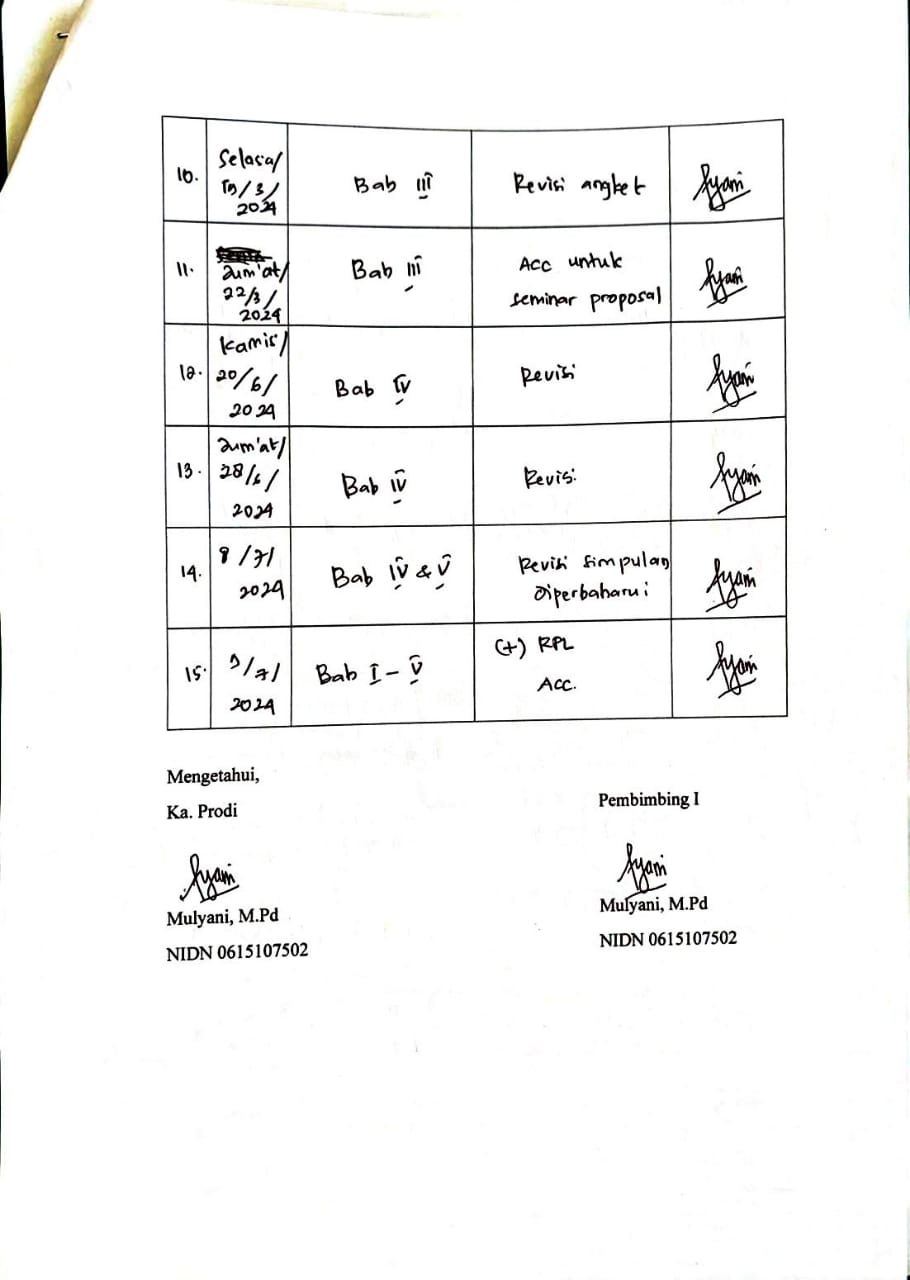 10.
Selasa/
19/3/
2024
Bab III
Revisi angket
11.
Jum'at/
22/3/
2024
Bab III
Acc untuk
seminar proposal
12.
Kamis/
20/6/
2024
Bab IV
Revisi
13.
Jum'at/
28/6/
2024
Bab IV
Revisi
14.
8/7/
2024
Bab IV & V
Revisi simpulan
diperbaharui
15.
9/7/
2024
Bab I - V
(+) RPL
Acc.
Mengetahui,
Ka. Prodi
Mulyani, M.Pd
NIDN 0615107502
Pembimbing I
Mulyani, M.Pd
NIDN 0615107502